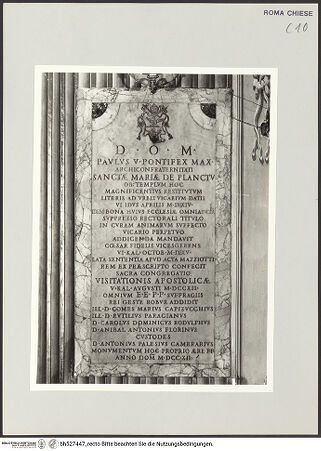 ROMA CHIESE
C 10
D · O · M
PAVLVS V · PONTIFEX MAX
ARCHICONFRATERNITATI
SANCTÆ MARIÆ DE PLANCTV
OB TEMPLVM HOC
MAGNIFICENTIVS RESTITVTVM
LITERIS AD VRBIS VICARIVM DATIS
VI IDVS APRILIS
DE BONA HVIVS ECCLESIÆ OMNIA
SVPPRESSO RECTORALI TITVLO
IN CVRAM ANIMARVM SVFFECTO
VICARIO PERPETVO
ADDICENDA MANDAVIT
CÆSAR FIDELIS VICESGERENS
VI · KAL · OCTOB ·
LATA SENTENTIA APVD ACTA MAZZIOTTI
REM EX PRÆSCRIPTO CONFECIT
SACRA CONGREGATIO
VISITATIONIS APOSTOLICÆ
V · KAL · AVGVSTI M · DCCXII
OMNIVM E·E· P·P· SVFFRAGIIS
REI GESTÆ ROBVR ADDIDIT
ILL · D · COMES MARIVS CAPISVCCHIVS
ILL · D · RVTILIVS PARACIANVS
D · CAROLVS DOMINICVS RODVLPHVS
D · ANIBAL ANTONIVS FLORINVS
CVSTODES
D · ANTONIVS PALESIVS CAMERARIVS
MONVMENTVM HOC PROPRIO ÆRE PP
ANNO DOM M · DCCXII
bh527447_recto Bitte beachten Sie die Nutzungsbedingungen.